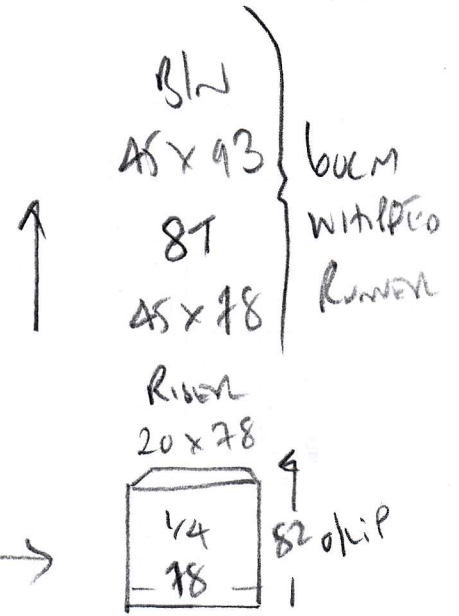 B/N
45 x 93
8T
45 x 78
60CM
WHIPPED
RUNNER
RISER
20 x 78
1/4
78
82 o/lip